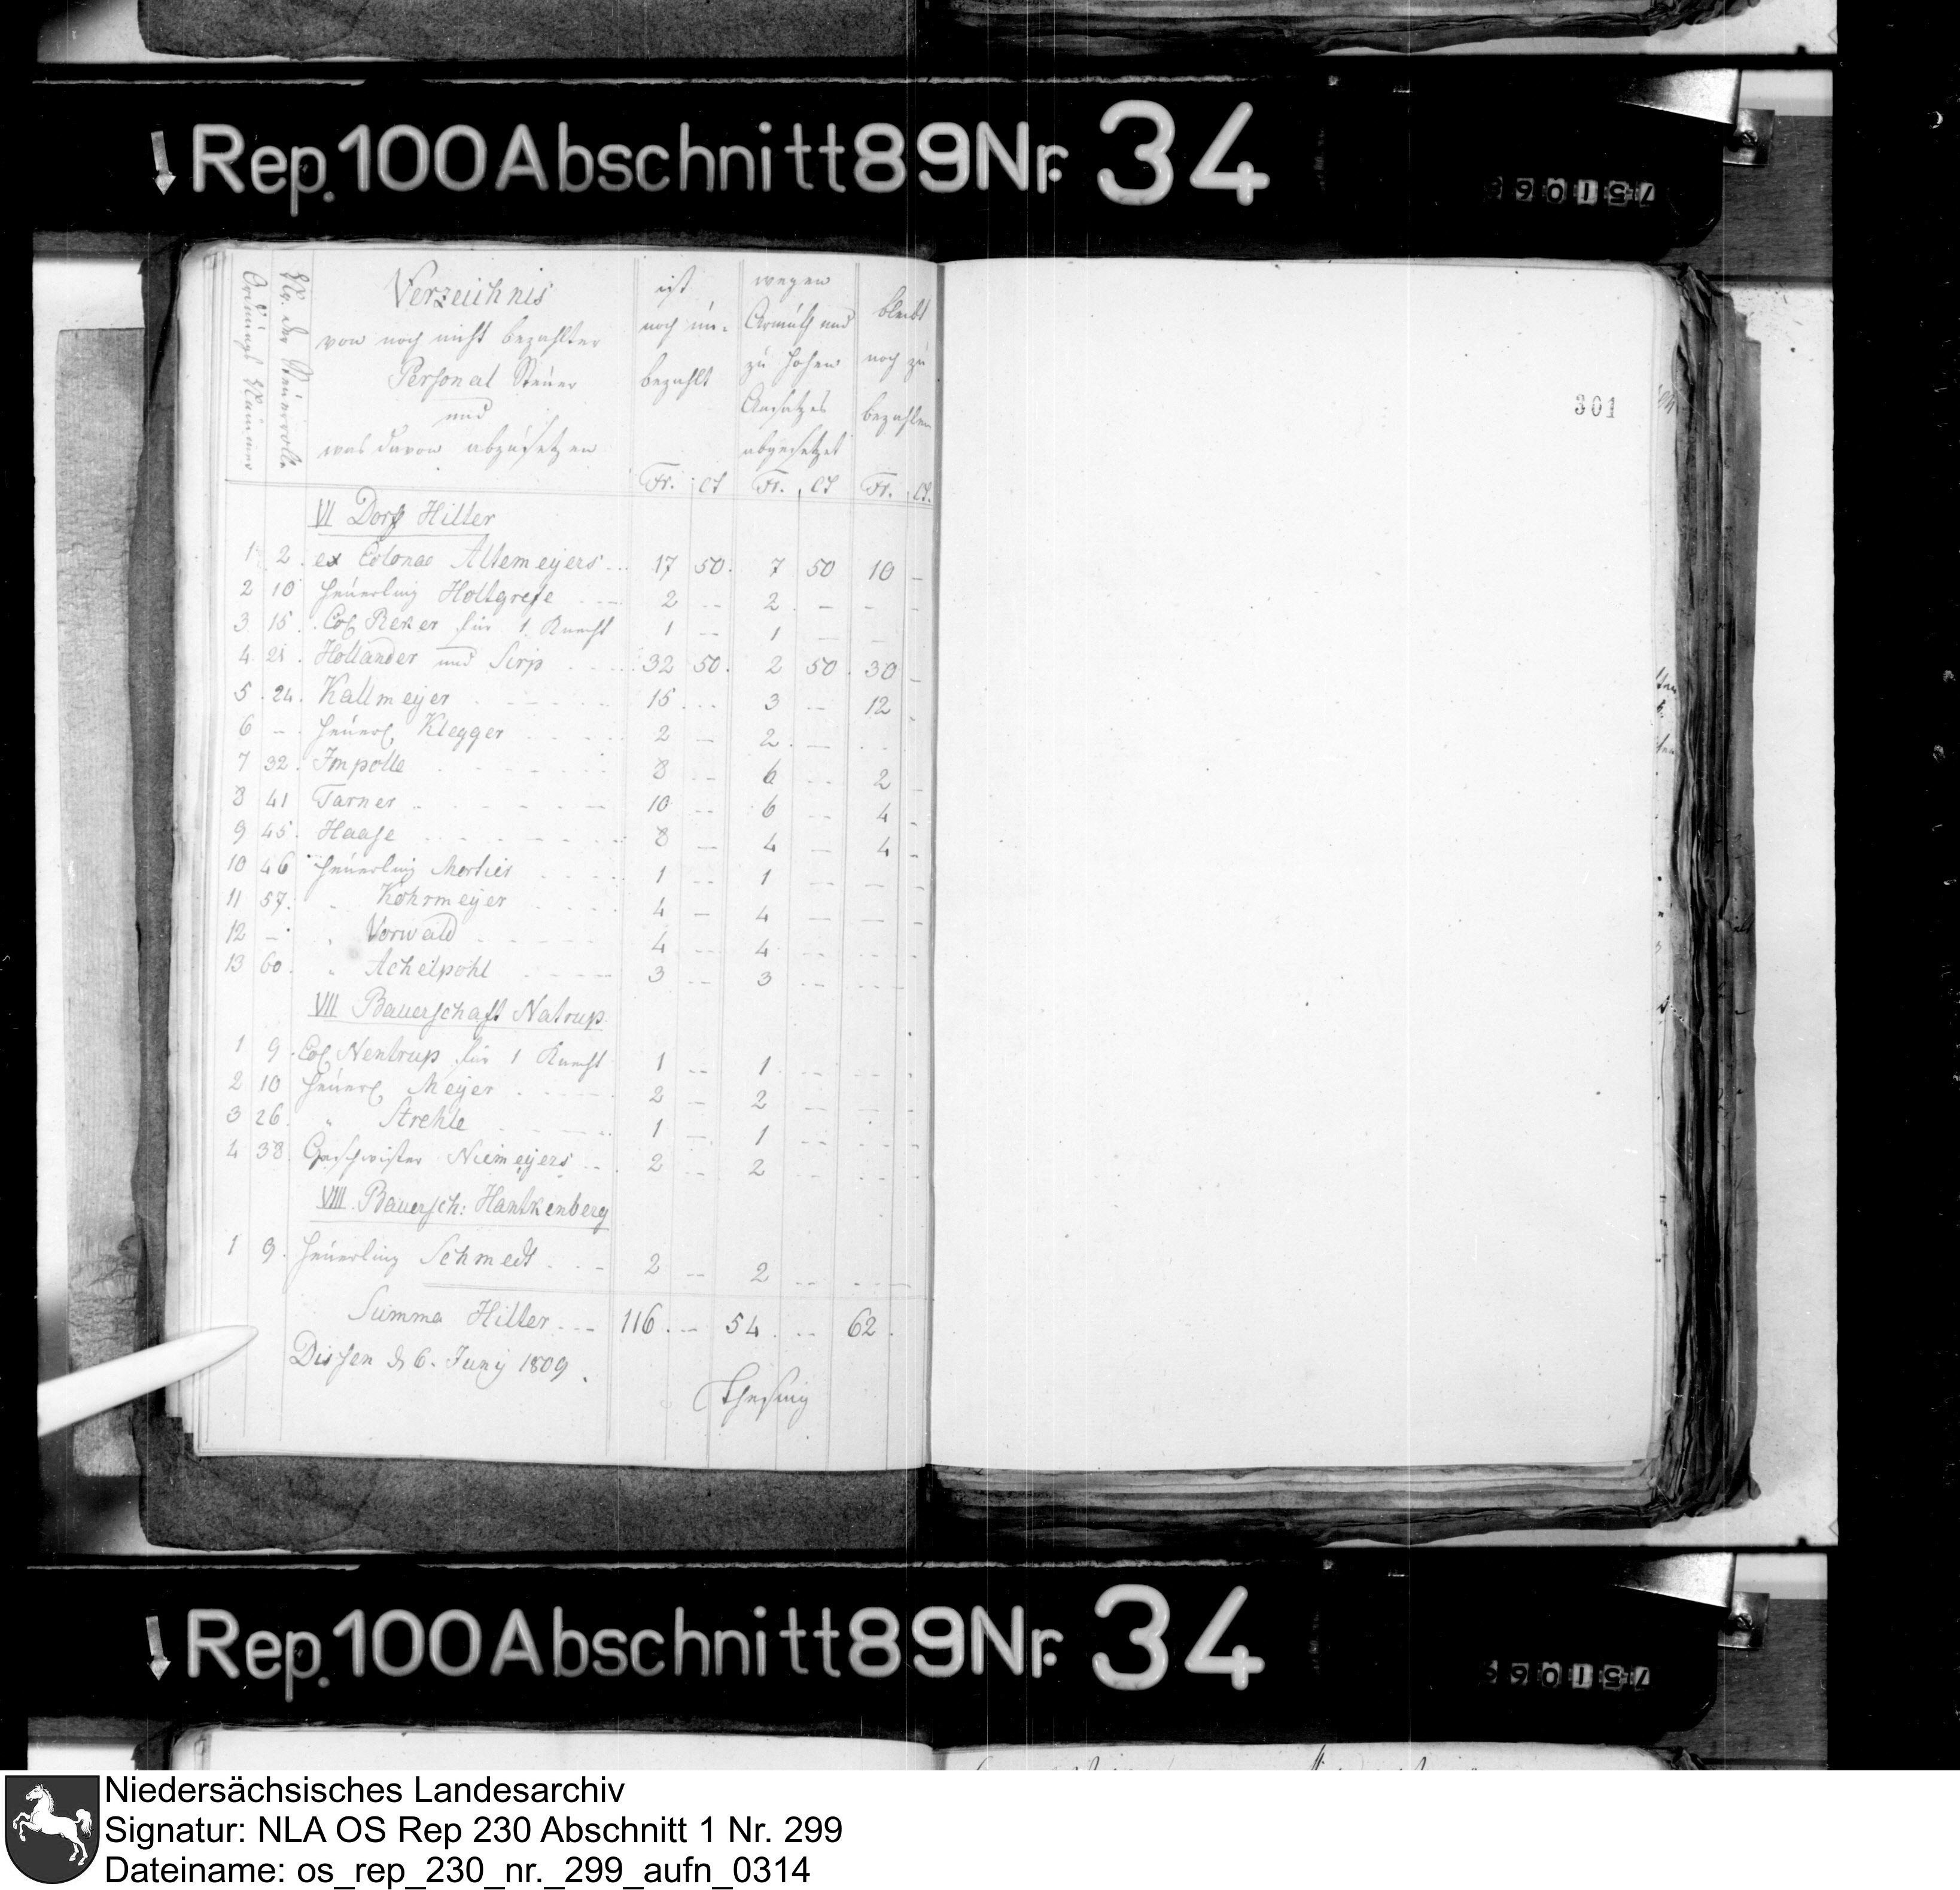 Rep. 100 Abschnitt 89 Nr. 34
751066
Ordnungs Nummer
Nr. der Steuerrolle
Verzeichnis
von noch nicht bezahlter
Personal Steuer
und
was davon abzusetzen
ist
noch un-
bezahlt
wegen
Armuth und
zu hohen
Ansatzes
abgesetzet
bleibt
noch zu
bezahlen
Fr. Ct Fr. Ct Fr. Ct.
VI Dorf Hilter
1 2 ex Colonao Altemeyers 17 50 7 50 10 -
2 10 Heuerling Holtgrefe 2 - 2 - - -
3 15 Col Reker für 1 Knecht 1 - 1 - - -
4 21 Hollander und Sirp 32 50 2 50 30 -
5 24 Kallmeyer 15 - 3 - 12 -
6 - Heuerl. Klegger 2 - 2 - - -
7 32 Impolle 8 - 6 - 2 -
8 41 Tarner 10 - 6 - 4 -
9 45 Haase 8 - 4 - 4 -
10 46 Heuerling 1 - 1 - - -
11 57 " Kohrmeyer 4 - 4 - - -
12 - " Vorwald 4 - 4 - - -
13 60 " Achelpohl 3 - 3 - - -
VII Bauerschaft Natrup
1 9 Col Nentrup für 1 Knecht 1 - 1 - - -
2 10 Heuerl. Meyer 2 - 2 - - -
3 26 " Strehle 1 - 1 - - -
4 38 Geschwister Niemeyers 2 - 2 - - -
VIII. Bauersch: Hankenberg
1 9. Heuerling Schmedt 2 - 2 - - -
Summa Hilter 116 - 54 - 62
Dissen d 6. Juny 1809.
301
Rep. 100 Abschnitt 89 Nr. 34
Niedersächsisches Landesarchiv
Signatur: NLA OS Rep 230 Abschnitt 1 Nr. 299
Dateiname: os_rep_230_nr._299_aufn_0314